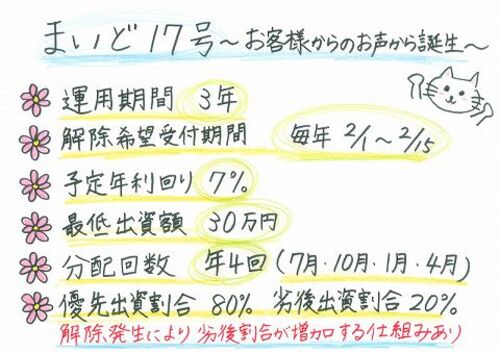 まいど17号～お客様からのお声から誕生～
運用期間 3年
解除希望受付期間 毎年 2/1～2/15
予定年利回り 7%
最低出資額 30万円
分配回数 年4回 (7月・10月・1月・4月)
優先出資割合 80% 劣後出資割合 20%
解除発生により劣後割合が増加する仕組みあり